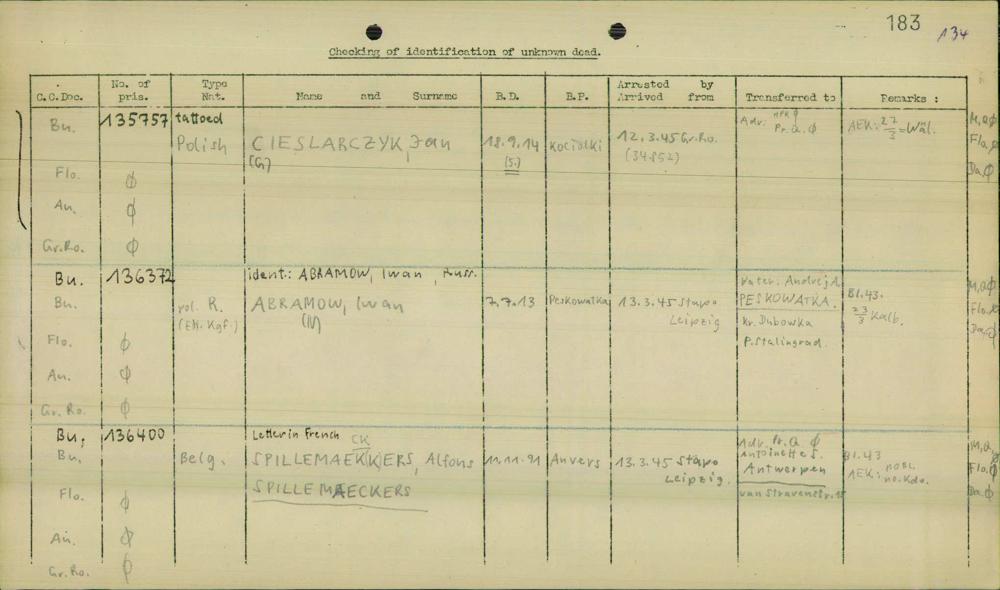 183
134
Checking of identification of unknown dead.
C.C.Doc. No. of pris. Type Nat. Name and Surname B.D. B.P. Arrested by Arrived from Transferred to Remarks :
Bu. 135757 tattoed
Polish CIESLARCZYK, Jan 18.9.14 Kociolki 12.3.45 Gr.Ro. Adv. Pr.Q. ϕ AEK: 27/3 = Wäl. M,Qϕ
(G) (5.) (34852) Flo.ϕ
Flo. ϕ Da.ϕ
Au. ϕ
Gr.Ro. ϕ
Bu. 136372 ident.: ABRAMOW, Iwan, Russ. Vater. Andrej A. M,Qϕ
Bu. pol. R. ABRAMOW, Iwan 7.7.13 Peskowatka 13.3.45 Stapo PESKOWATKA. Bl.43. Flo.ϕ
(Eh. Kgf.) (IV) Leipzig kr. Dubowka 23/3 Kalb. Da.ϕ
Flo. ϕ P.Stalingrad.
Au. ϕ
Gr.Ro. ϕ
Bu. 136400 Letter in French CK Adv. Pr.Q ϕ M,Q
Bu. Belg. SPILLEMAEK(K)ERS, Alfons 11.11.91 Anvers 13.3.45 Stapo Antoinette S. Bl.43 Flo.ϕ
Leipzig. Antwerpen AEK: no Bl. no. Kdo.
Flo. ϕ SPILLEMAECKERS Da.ϕ
Au. ϕ
Gr.Ro. ϕ